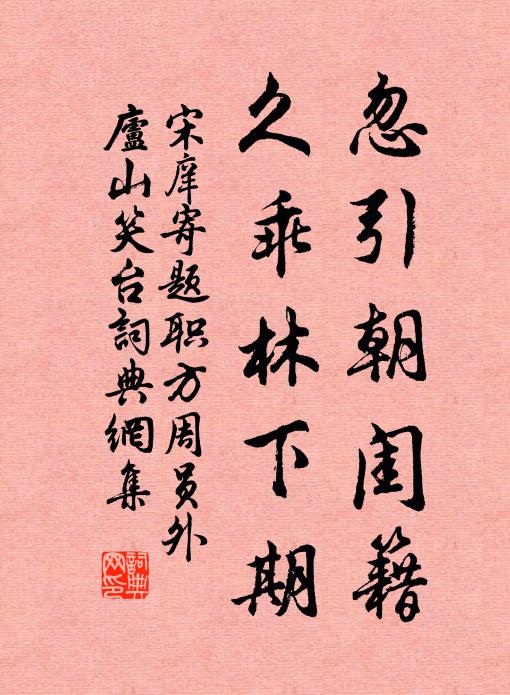 忽引朝闺籍
久乖林下期
宋庠寄题职方周员外
廬山笑台詞典網集
詞典网印